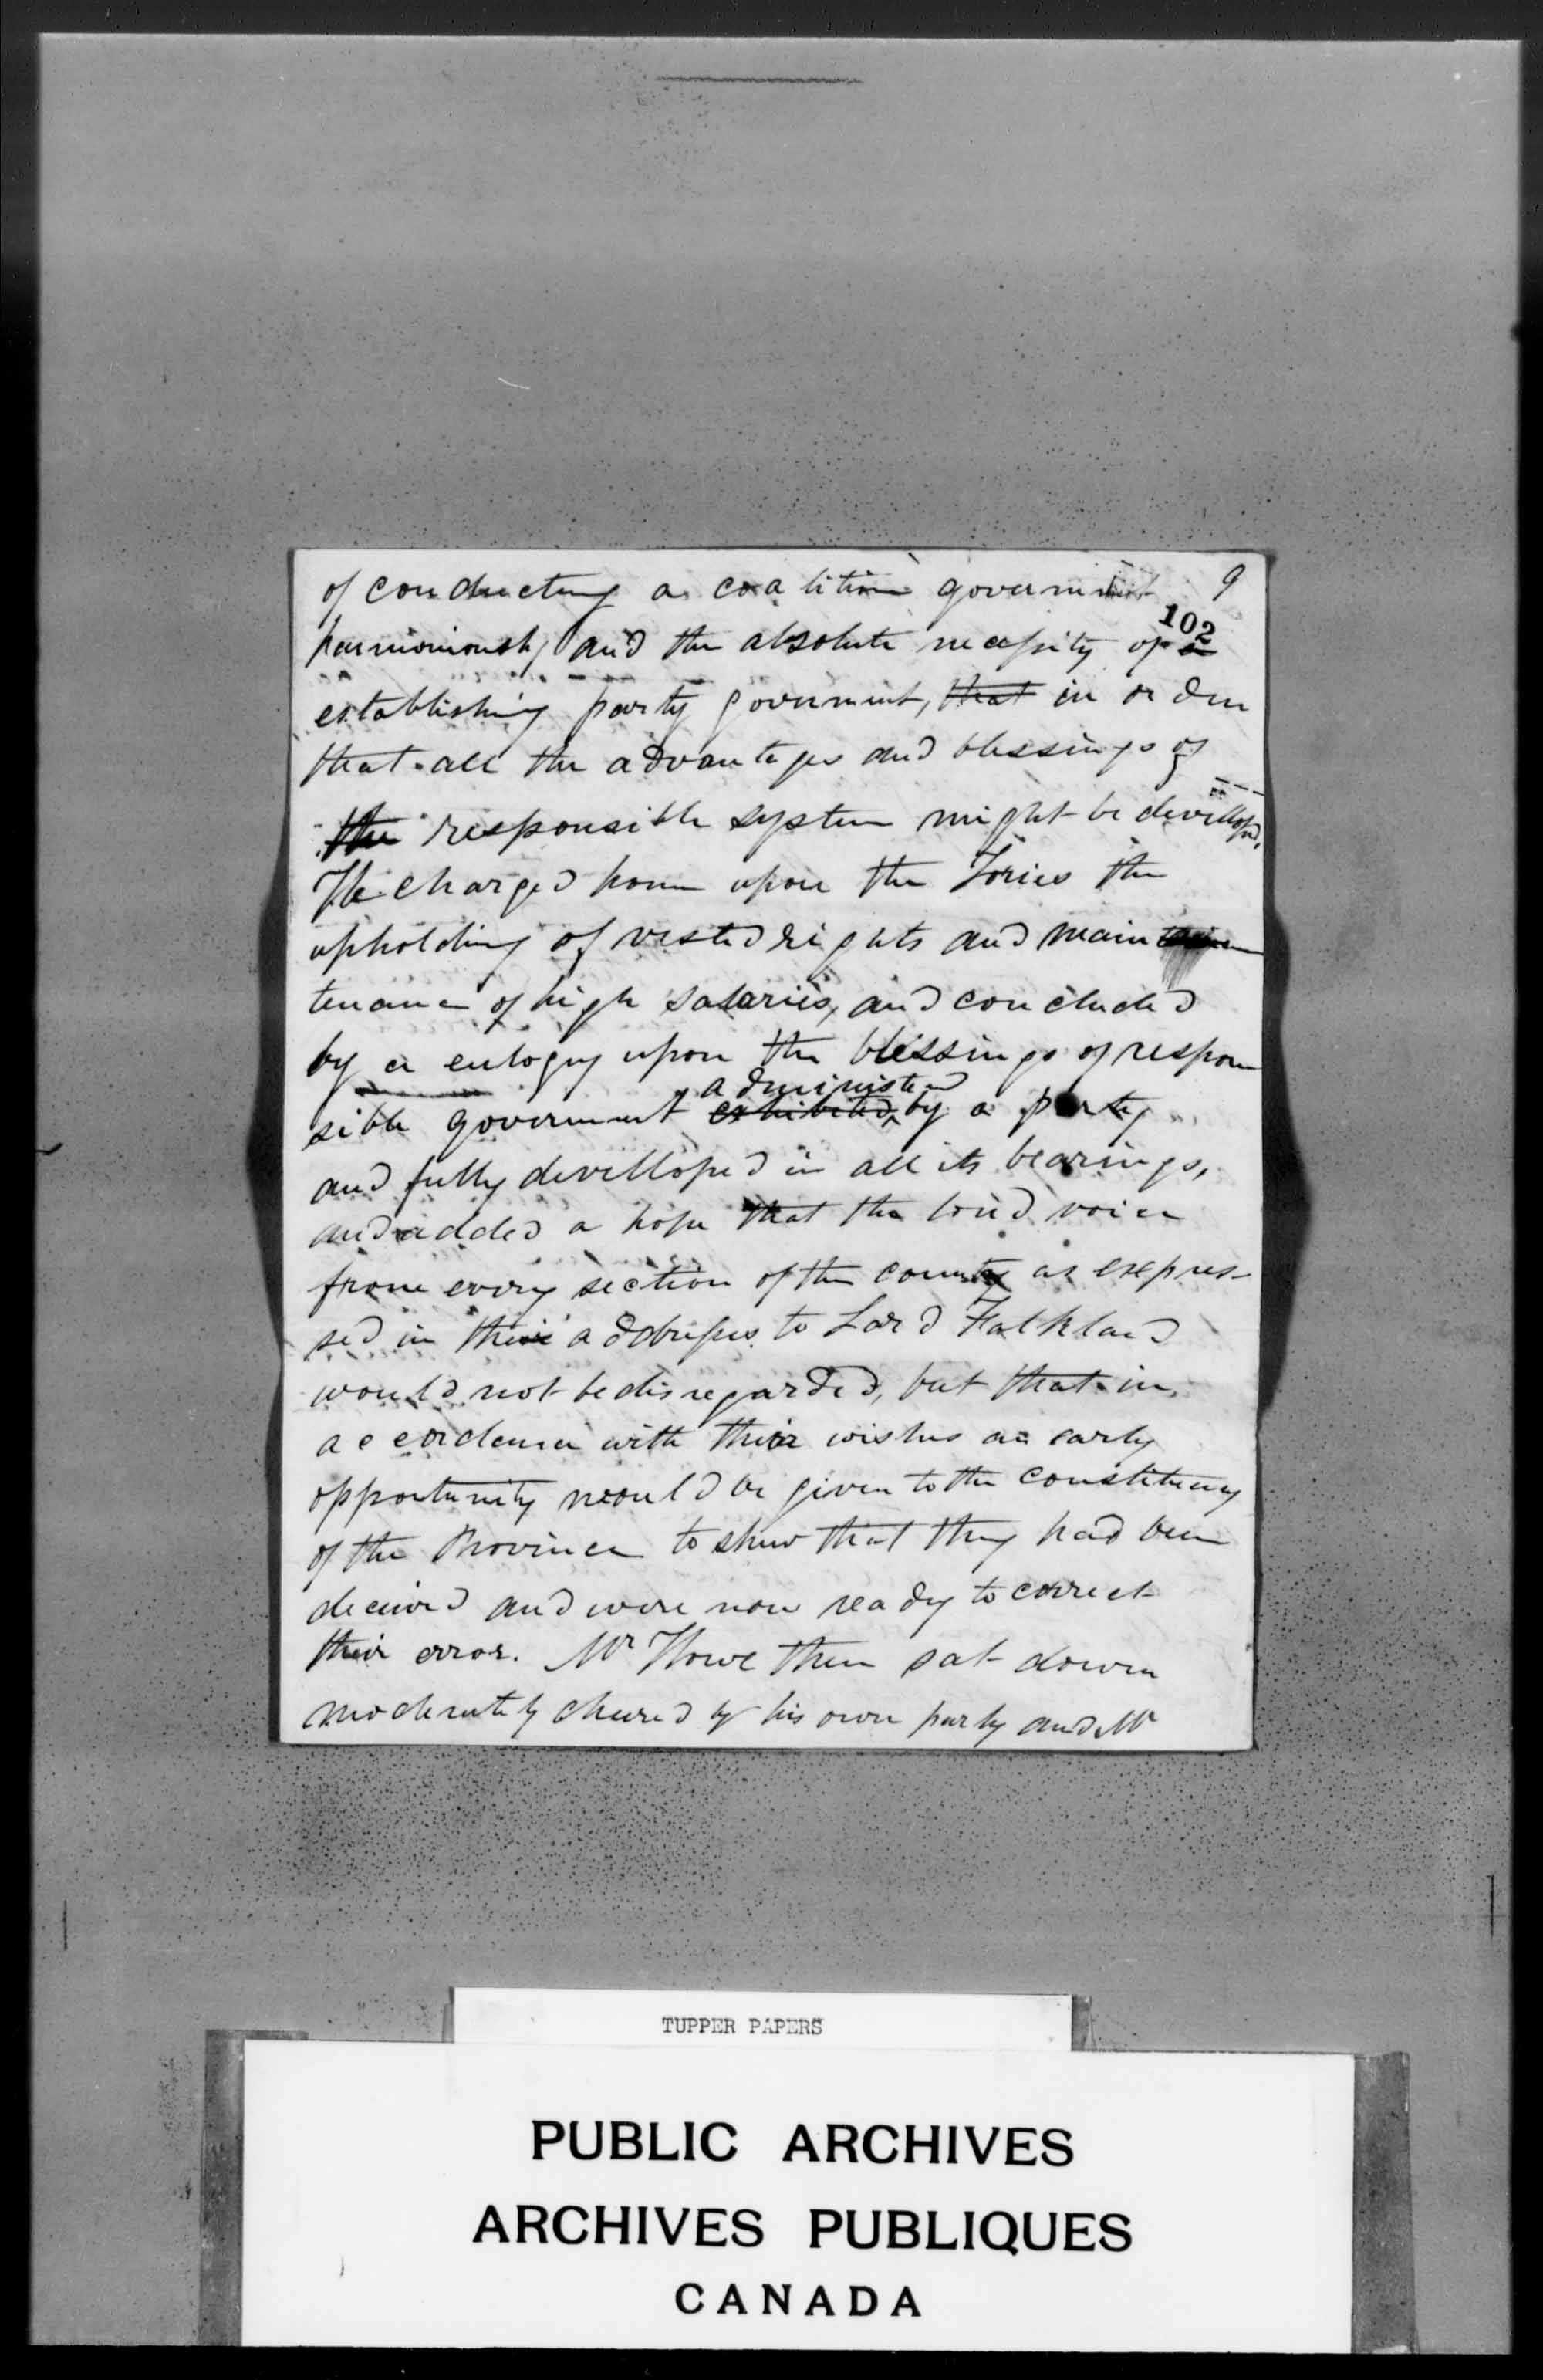 of conducting a coalition government 9
102
harmoniously and the absolute necessity of a
establishing party government, that in order
that all the advantages and blessings of
the responsible system might be develloped.
He charged home upon the Tories the
upholding of vested rights and main
tenance of high salaries, and concluded
by a eulogy upon the blessings of respon
administered
sible government exhibited by a party
and fully develloped in all its bearings,
and added a hope that the loud voice
from every section of the county as expres-
sed in their addresses to Lord Falkland
would not be disregarded, but that in
accordance with their wishes an early
opportunity would be given to the constituency
of the Province to shew that they had been
deceived and were now ready to correct
their error. Mr Howe then sat down
moderately cheered by his own party and Mr
TUPPER PAPERS
PUBLIC ARCHIVES
ARCHIVES PUBLIQUES
CANADA